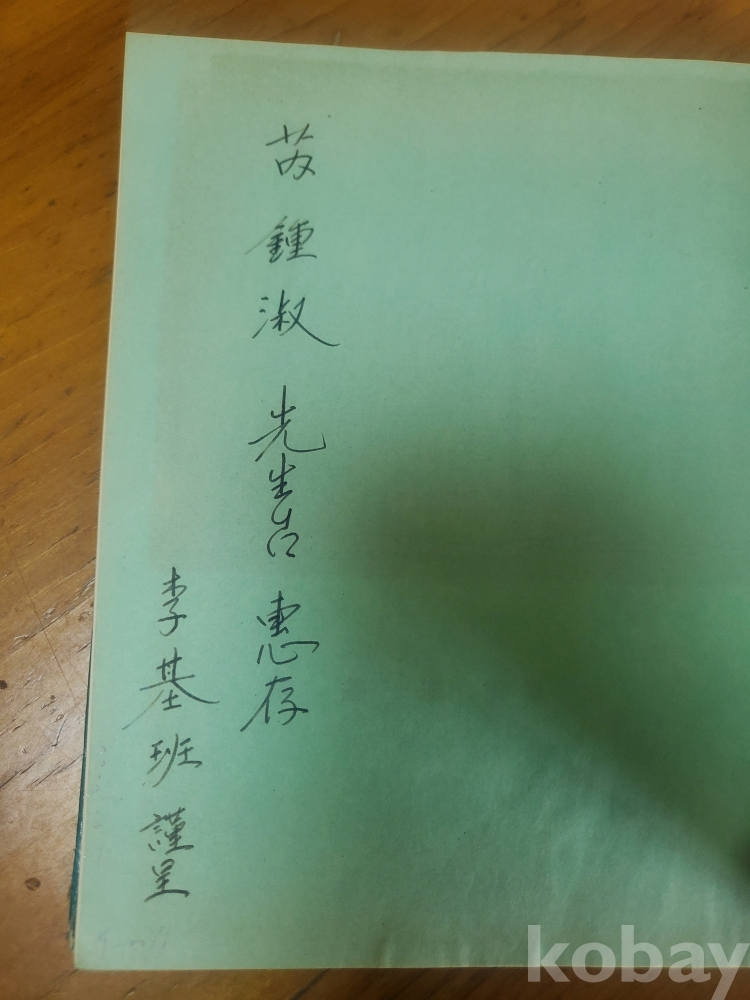 芮鍾淑 先生 惠存
李基班 謹呈
kobay